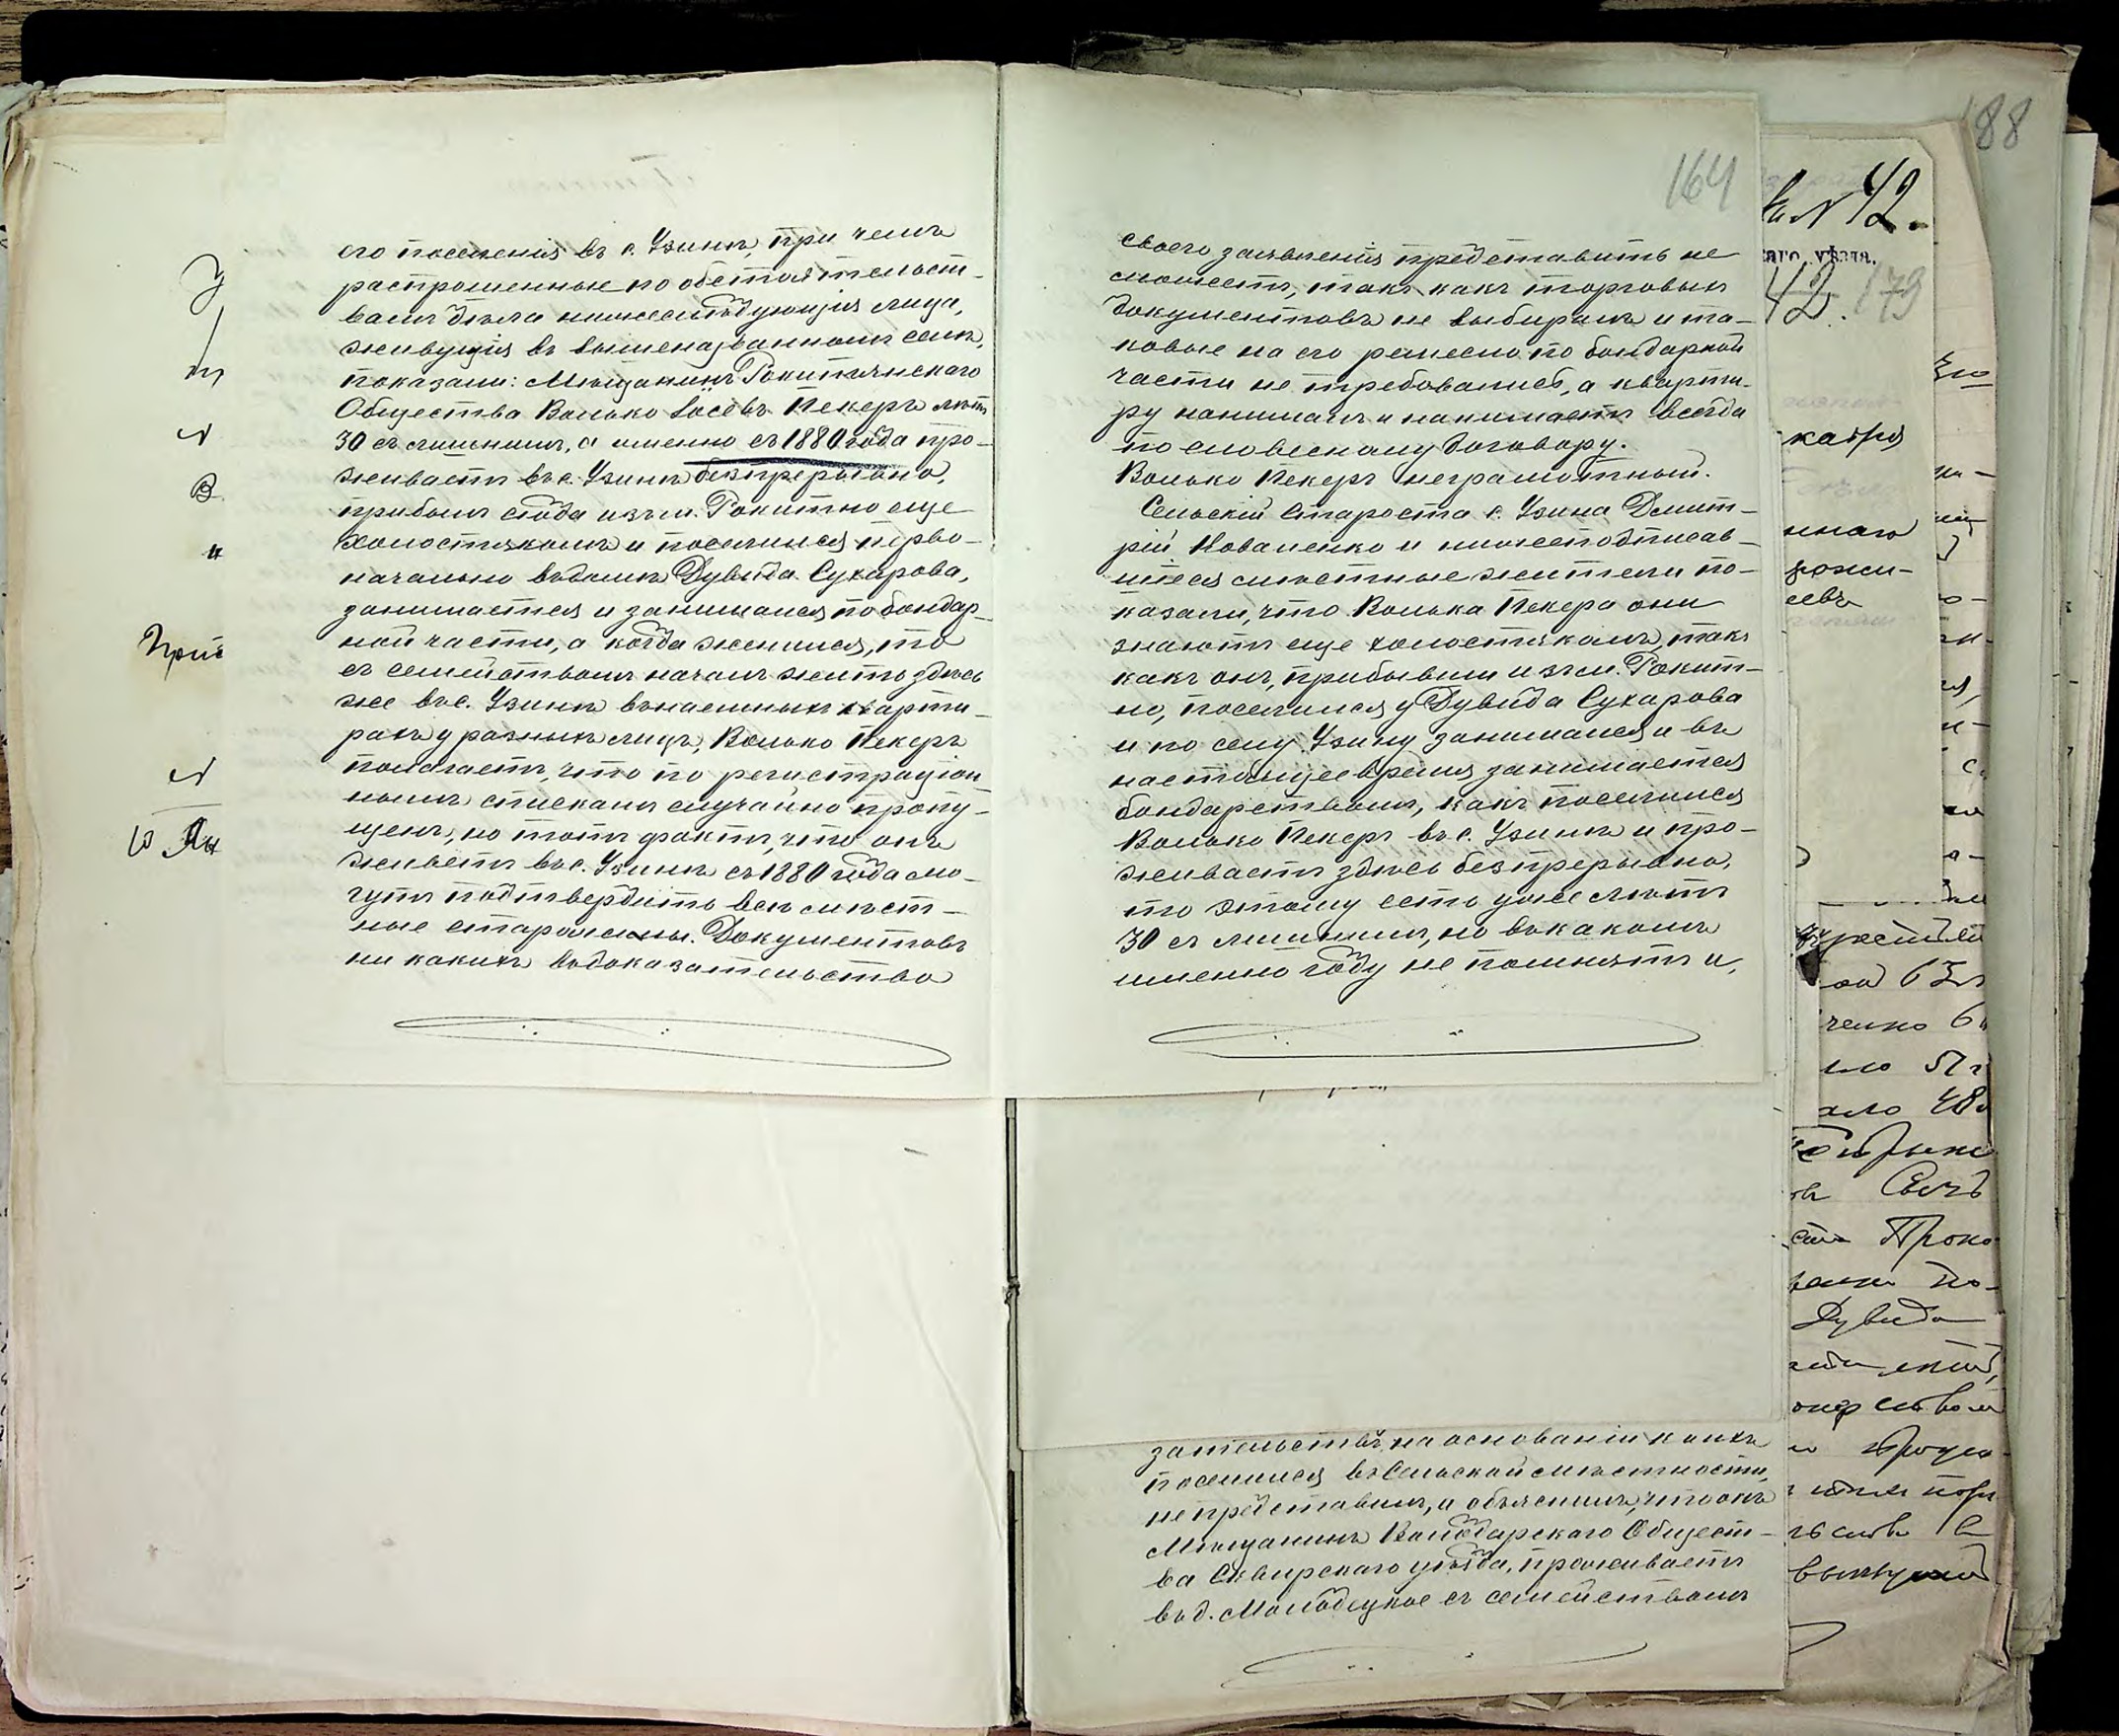 его поселенія въ с. Узинѣ, при чемъ
распрошенные по обстоятельст-
вамъ дѣла нижеслѣдующія лица,
живущія въ вышеназванномъ селѣ,
показали: Мѣщанинъ Рокитянскаго
Общества Волько Іосевъ Пекеръ лѣтъ
30 съ лишнимъ, а именно съ 1880 года про-
живаетъ въ с. Узинѣ безпрерывно,
прибылъ сюда изъ м. Рокитно еще
холостякомъ и поселился перво-
начально въ домѣ Дувида Сухарова,
занимается и занимался по бондар-
ной части, а когда женился, то
съ семействомъ началъ жить здѣсь
же въ с. Узинѣ въ наемныхъ кварти-
рахъ у разныхъ лицъ, Волько Пекеръ
полагаетъ, что по регистрацiон
нымъ спискамъ случайно пропу-
щенъ, но тотъ фактъ, что онъ
живетъ въ с. Узинѣ съ 1880 года мо-
гутъ подтвердить всѣ мѣст-
ные старожилы. Документовъ
ни какихъ въ доказательство
164
своего заявленія представить не
можетъ, такъ какъ торговыхъ
документовъ не выбиралъ и та-
ковые на его ремесло по бондарной
части не требовались, а кварти-
ру нанималъ и нанимаетъ всегда
по словесному договору.
Волько Пекеръ неграмотный.
Сельскій Староста с. Узина Дмит-
рій Коваленко и нижеподписав-
шіеся мѣстные жители по-
казали, что Волька Пекера они
знаютъ еще холостякомъ, такъ
какъ онъ, прибывши изъ м. Рокит-
но, поселился у Дувида Сухарова
и по селу Узину занимался и въ
настоящее время занимается
бондарствомъ, какъ поселился
Волько Пекеръ въ с. Узинѣ и про-
живаетъ здѣсь безпрерывно,
то этому есть уже лѣтъ
30 съ лишнимъ, но въ какомъ
именно году не помнятъ и,
зательствъ, на основаніи коихъ
поселился въ Сельской мѣстности,
не представилъ, и объяснилъ, что онъ
Мѣщанинъ Володарскаго Общест-
ва Сквирскаго уѣзда, проживаетъ
въ д. Молодецкое съ семействомъ
188
№ 42.
каго уѣзда.
42. 179
Дувида